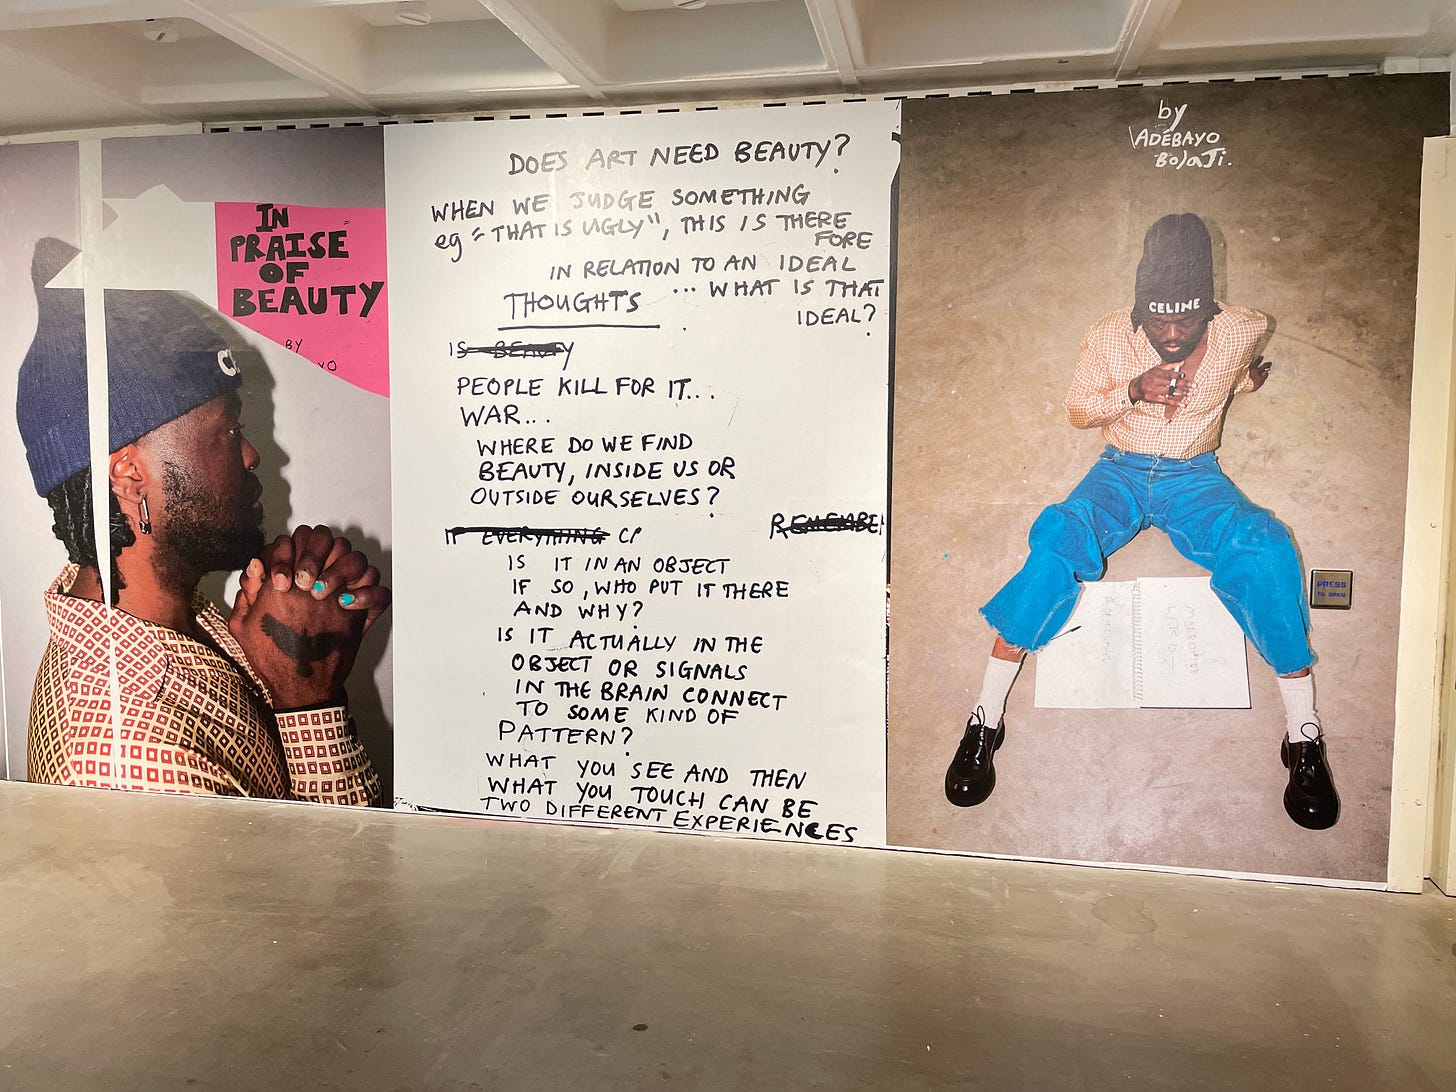 IN
PRAISE
OF
BEAUTY
BY
YO
DOES ART NEED BEAUTY?
WHEN WE JUDGE SOMETHING
eg "THAT IS UGLY", THIS IS THERE
FORE
IN RELATION TO AN IDEAL
... WHAT IS THAT
IDEAL?
THOUGHTS
IS BEAUTY
PEOPLE KILL FOR IT...
WAR...
WHERE DO WE FIND
BEAUTY, INSIDE US OR
OUTSIDE OURSELVES?
REMEMBE
IF EVERYTHING
IS IT IN AN OBJECT
IF SO, WHO PUT IT THERE
AND WHY?
IS IT ACTUALLY IN THE
OBJECT OR SIGNALS
IN THE BRAIN CONNECT
TO SOME KIND OF
PATTERN?
WHAT YOU SEE AND THEN
WHAT YOU TOUCH CAN BE
TWO DIFFERENT EXPERIENCES
by
ADÉBAYO
BolaJi.
CELINE
PRESS
TO OPEN